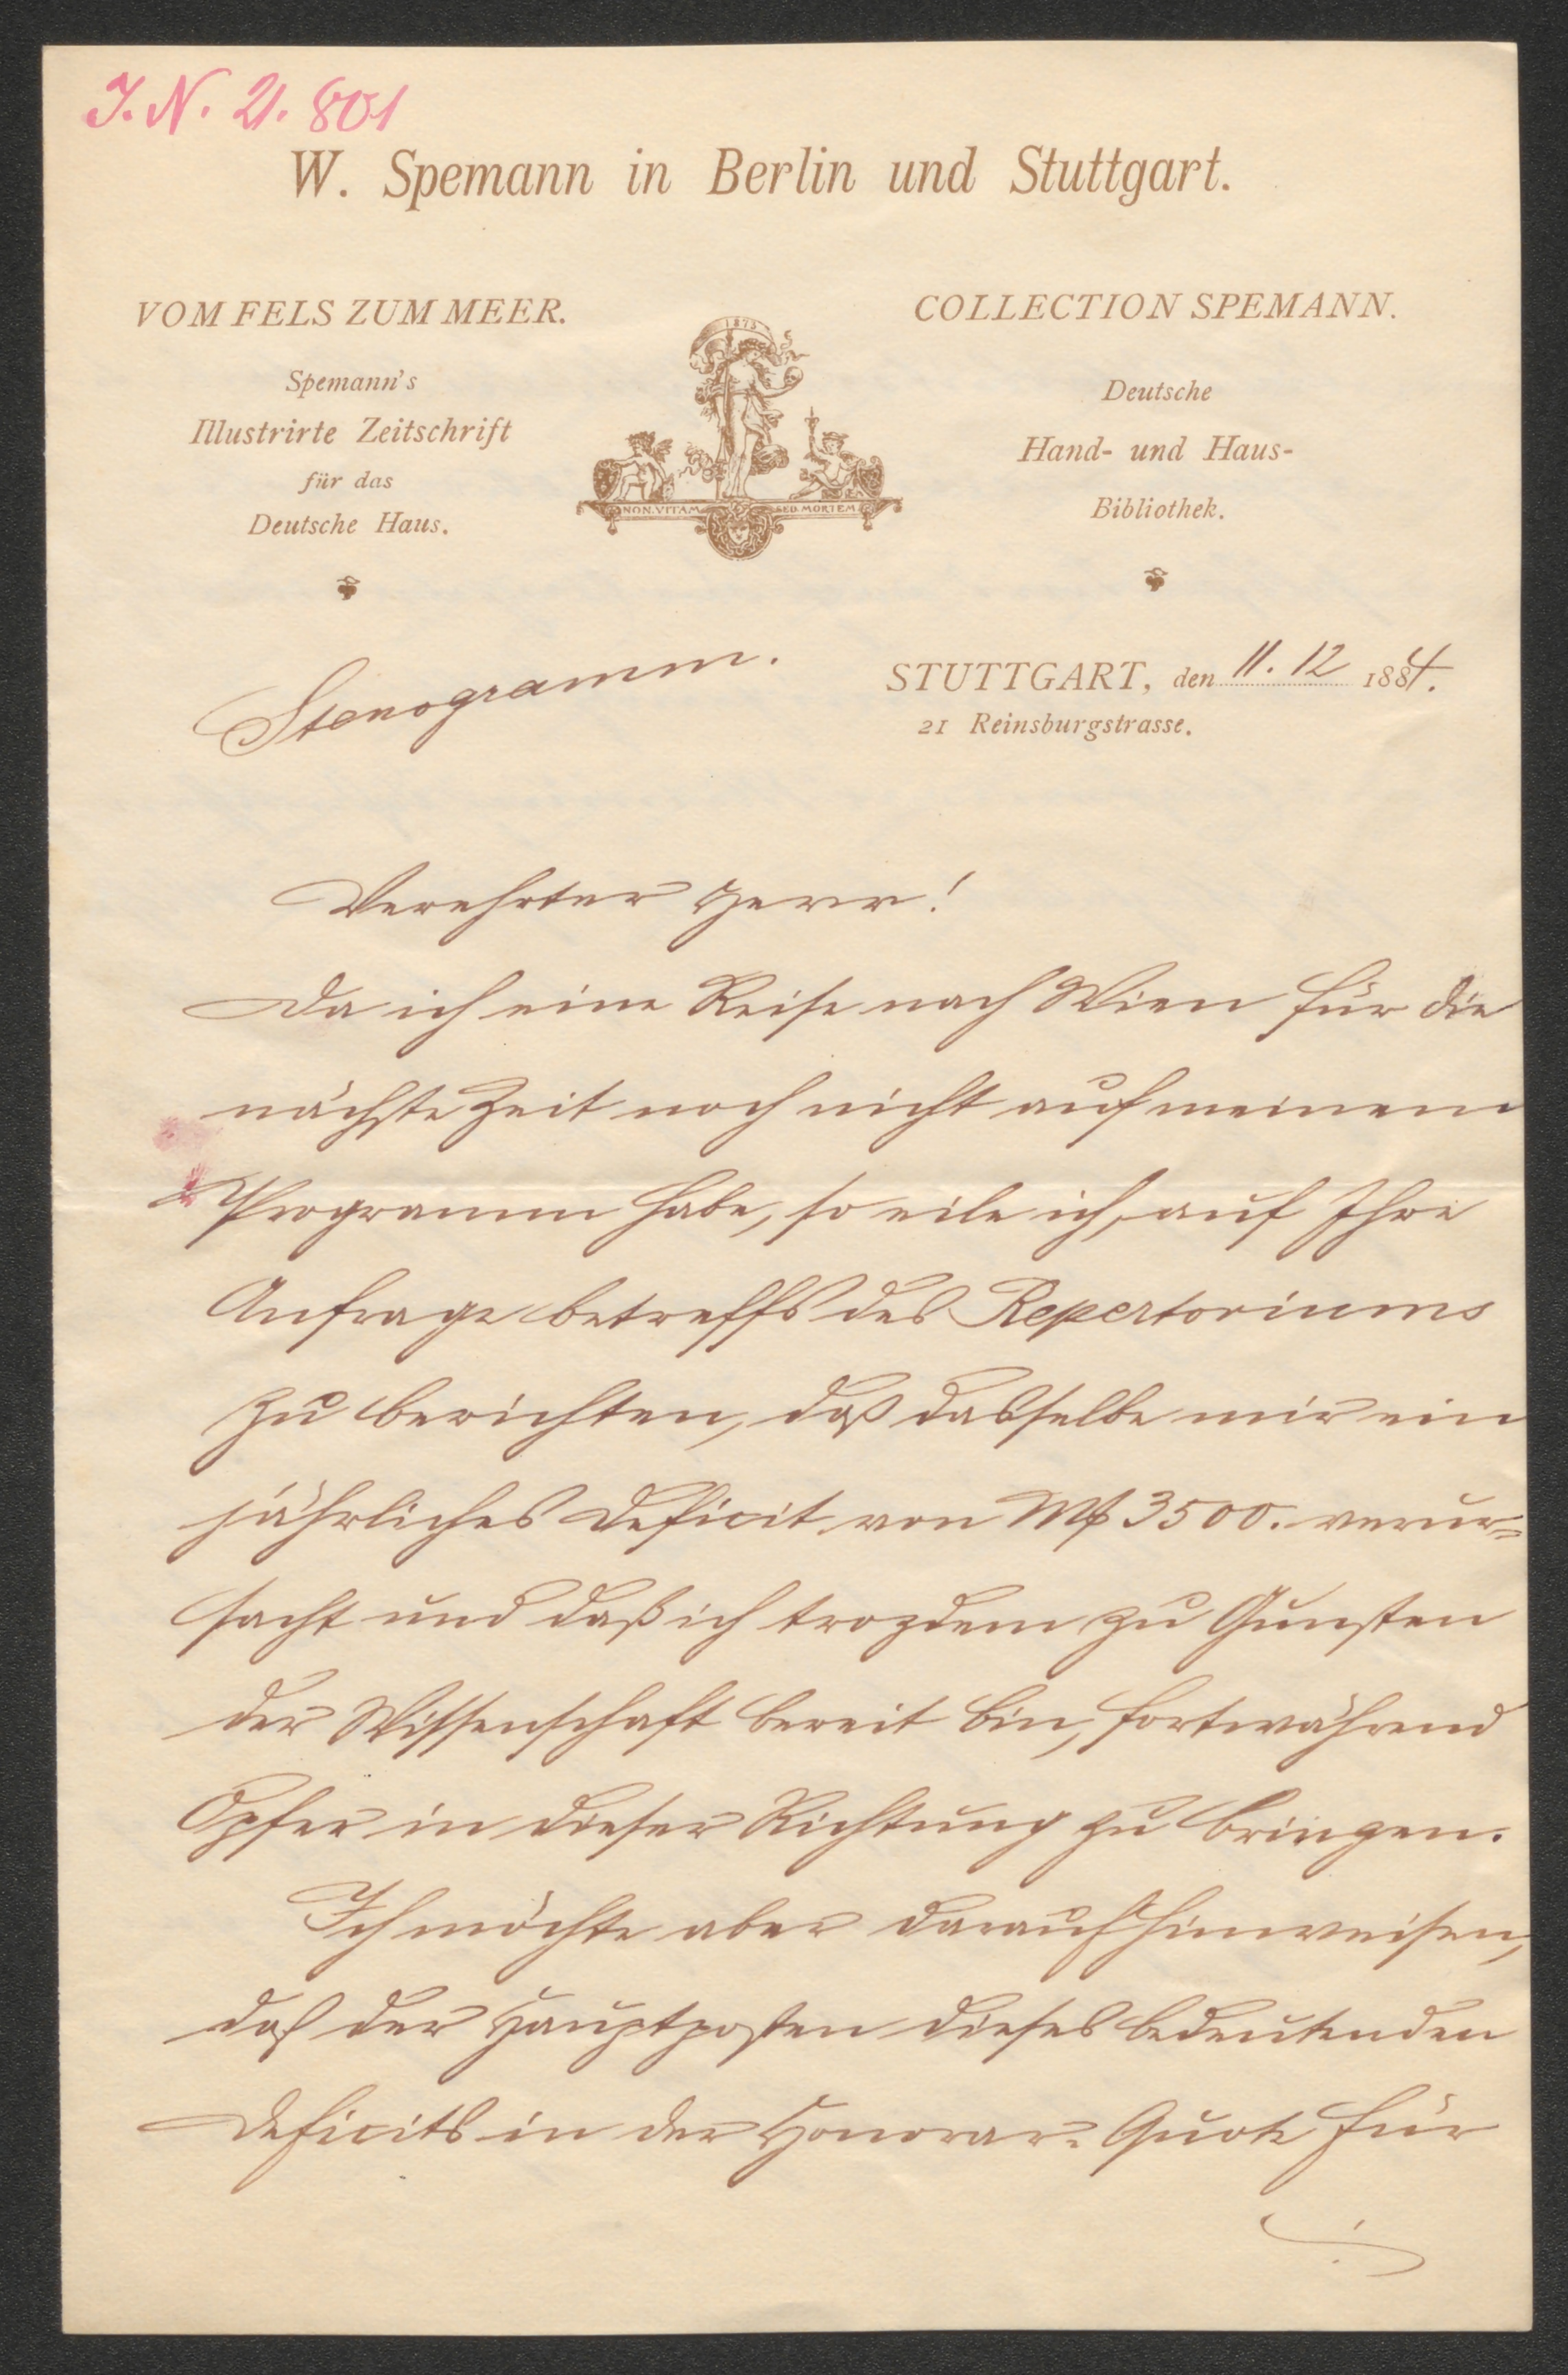 I.N. 21.801
W. Spemann in Berlin und Stuttgart.
VOM FELS ZUM MEER.
Spemann's
Illustrirte Zeitschrift
für das
Deutsche Haus.
1873
NON.VITAM SED.MORTEM
COLLECTION SPEMANN.
Deutsche
Hand- und Haus-
Bibliothek.
Stenogramm.
STUTTGART, den 11. 12 1884.
21 Reinsburgstrasse.
Verehrter Herr!
Da ich eine Reise nach Wien für die
nächste Zeit noch nicht auf meinem
Programm habe, so eile ich, auf Ihre
Anfrage betreffs des Repertoriums
zu berichten, daß dasselbe mir ein
jährliches Deficit von Mk 3500. verur=
sacht und daß ich trozdem zu Gunsten
der Wissenschaft bereit bin, fortwährend
Opfer in dieser Richtung zu bringen.
Ich möchte aber darauf hinweisen,
daß der Hauptposten dieses bedeutenden
Deficits in der Honorar-Quote für